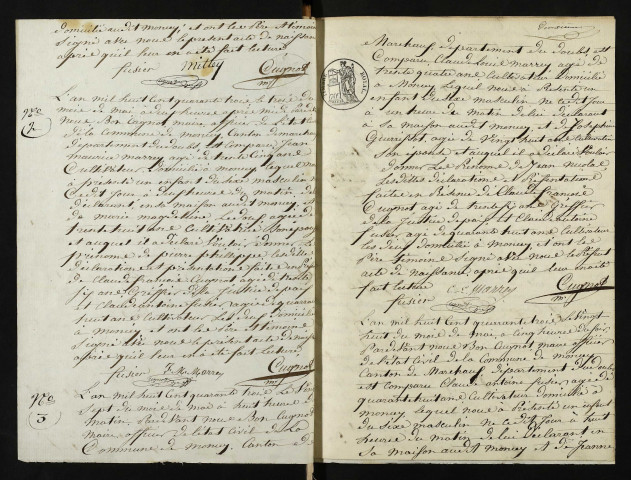 domicilié audit moncey, et ont les Père et témoins
signé avec nous le présent acte de naissance
après qu'il leur en a été fait lecture
fusier mittey Cugnot
mre
nce
2
L'an mil huit Cent quarante trois le trois du
mois de mai à neuf heures
Nous Bon Cugnot maire officier de l'état Civil
de la Commune de moncey Canton de marchaux
département du doubs, est Comparu Jean
maurice marrey agé de trente cinq ans
Cultivateur domicilié à moncey, lequel nous
a présenté un enfant de sexe masculin né
ce dit jour à heures du matin de lui
déclarant, en sa maison audit moncey, et
de marie magdeleine agée de
trente huit ans Cultivatrice son épouse
et auquel il a déclaré vouloir donner le
prénome de pierre philippe, les dites
déclaration et présentation faite en présence
de Claude francois Cugnot agé de trente
six ans Greffier de la Justice de paix
et Claude antoine fusier agé de quarante
huit ans Cultivateur les deux domiciliés
à moncey et ont les Père et témoins
signé avec nous le présent acte de naissance
après qu'il leur en a été fait lecture
fusier J. M. Marrey Cugnot
mre
nce
3
L'an mil huit Cent quarante trois le
sept du mois de mai à huit heures du
matin, Pardevant nous Bon Cugnot
maire officier de l'état Civil de la
Commune de moncey, Canton de
Marchaux département du doubs est
Comparu Claude Louis marrey agé de
trente quatre ans Cultivateur domicilié
à moncey lequel nous a présenté un
enfant de sexe masculin né ce dit jour
à un heure du matin de lui déclarant
en sa maison audit moncey et de Josephine
agée de vingt huit ans Cultivatrice
son épouse et auquel il a déclaré vouloir
donner le Prénome de Jean nicolas
les dites déclarations et Présentation
faite en Présence de Claude francois
Cugnot agé de trente six ans Greffier
de la Justice de paix et Claude antoine
fusier agé de quarante huit ans Cultivateur
les deux domiciliés à Moncey et ont les
Père témoins signé avec nous le Présent
acte de naissance, après qu'il leur en a été
fait lecture C. L. Marrey Cugnot
fusier mre
L'an mil huit Cent quarante trois le vingt
huit du mois de mai à cinq heures du soir
Pardevant nous Bon Cugnot maire officier
de l'état Civil de la Commune de moncey
Canton de Marchaux département du doubs
est Comparu Claude antoine fusier agé de
quarante huit ans Cultivateur domicilié à
moncey lequel nous a Présenté un enfant
du sexe masculin né ce dit jour à huit
heures du matin de lui déclarant en
sa maison audit moncey et de Jeanne